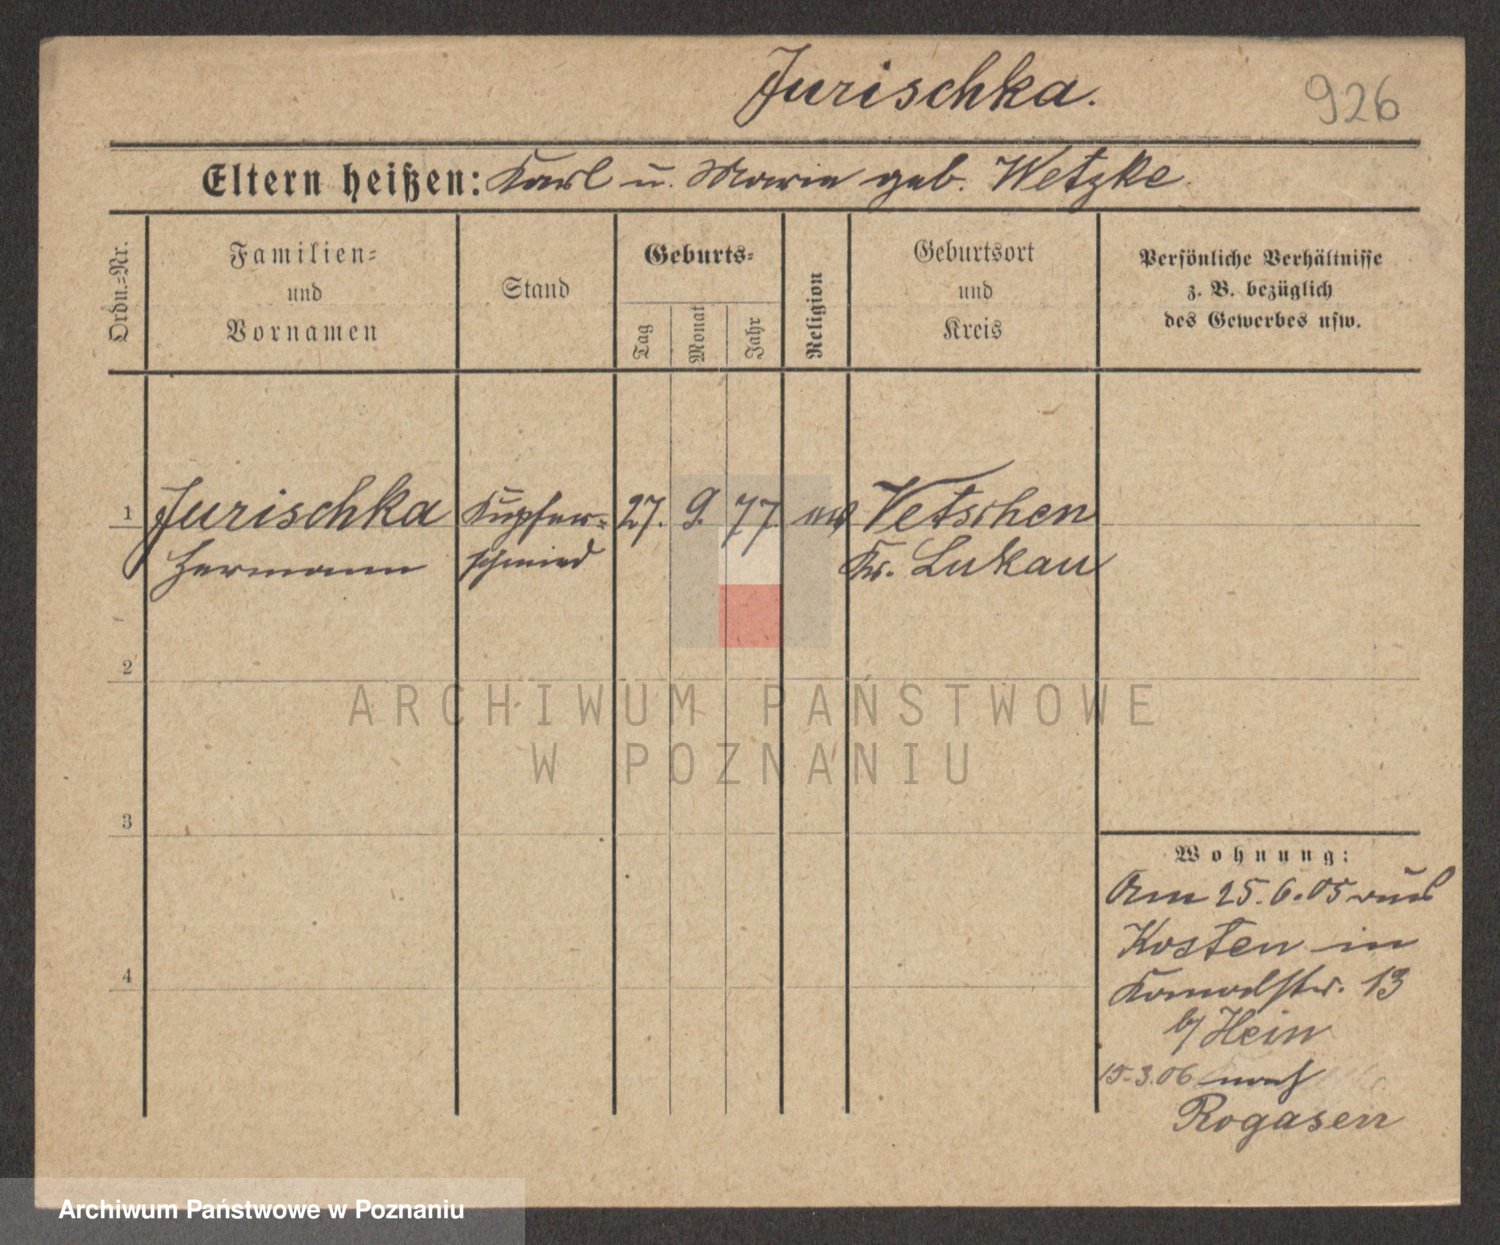 Jurischka.
926
Eltern heißen: Karl u. Marie geb. Wetzke.
Ordn.=Nr.
Familien=
und
Vornamen
Stand
Geburts=
Tag
Monat
Jahr
Religion
Geburtsort
und
Kreis
Persönliche Verhältnisse
z. B. bezüglich
des Gewerbes usw.
1 Jurischka Kupfer= 27. 9. 77 ev Vetschen
Hermann schmied Kr. Lukau
2
3
4
Wohnung:
Am 25.6.05 aus
Kosten in
13
b/ Hein
15.3.06 nach
Rogasen
ARCHIWUM PAŃSTWOWE
W POZNANIU
Archiwum Państwowe w Poznaniu